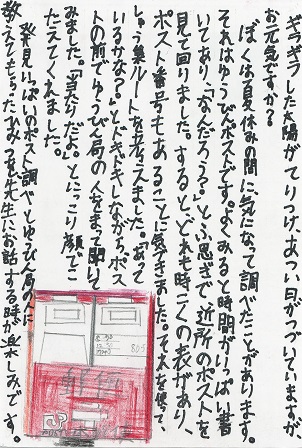 ギラギラした太陽がてりつけ、あつい日がつづいていますが、
お元気ですか?
ぼくは夏休みの間に、気になって調べたことがあります。
それはゆうびんポストです。よくみると時間がいっぱい書
いてあり、「なんだろう?」とふ思ぎで、近所のポストを
見て回りました。するとどれも時こくの表があり、
ポスト番号もあることに気づきました。それを使って、
しゅう集ルートを考えました。「あって
いるかな?」とドキドキしながらポス
トの前でゆうびん局の人をまって聞いて
みました。「当たりだよ。」とにっこり顔でこ
たえてくれました。
発見いっぱいのポスト調べとゆうびん局の人に
教えてもらったひみつを先生にお話する時が楽しみです。
805
POST